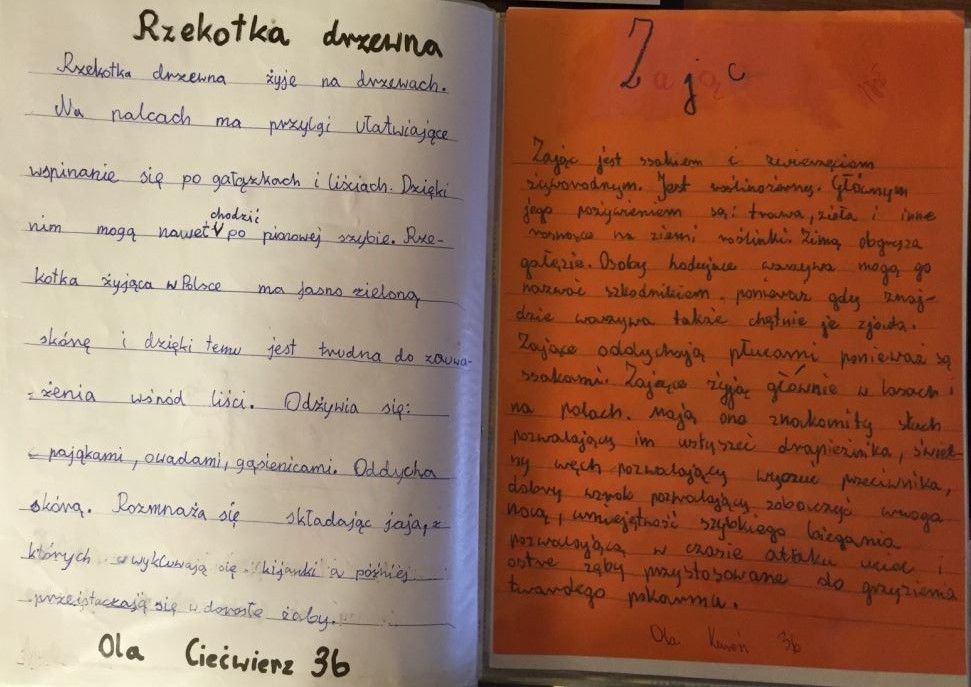 Rzekotka drzewna
Rzekotka drzewna żyje na drzewach.
Na palcach ma przylgi ułatwiające
wspinanie się po gałązkach i liściach. Dzięki
chodzić
nim mogą nawet V po pionowej szybie. Rze-
kotka żyjąca w Polsce ma jasno zieloną
skórę i dzięki temu jest trudna do zauwa-
-żenia wśród liści. Odżywia się:
- pająkami, owadami, gąsienicami. Oddycha
skórą. Rozmnaża się składając jaja, z
których wykluwają się kijanki a później
przeistaczają się w dorosłe żaby.
Ola Ciećwierz 3b
Zając
Zając jest ssakiem i zwierzęciem
żyworodnym. Jest roślinożerny. Głównym
jego pożywieniem są: trawa, zioła i inne
rosnące na ziemi roślinki. Zimą obgryza
gałęzie. Osoby hodujące warzywa mogą go
nazwać szkodnikiem, ponieważ gdy znaj-
dzie warzywa także chętnie je zjada.
Zające oddychają płucami ponieważ są
ssakami. Zające żyją głównie w lasach i
na polach. Mają one znakomity słuch
pozwalający im usłyszeć drapieżnika, świet-
ny węch pozwalający wyczuć przeciwnika,
dobry wzrok pozwalający zobaczyć wroga
nocą, umiejętność szybkiego biegania
pozwalającą w czasie ataku uciec i
ostre zęby przystosowane do gryzienia
twardego pokarmu.
Ola 3b